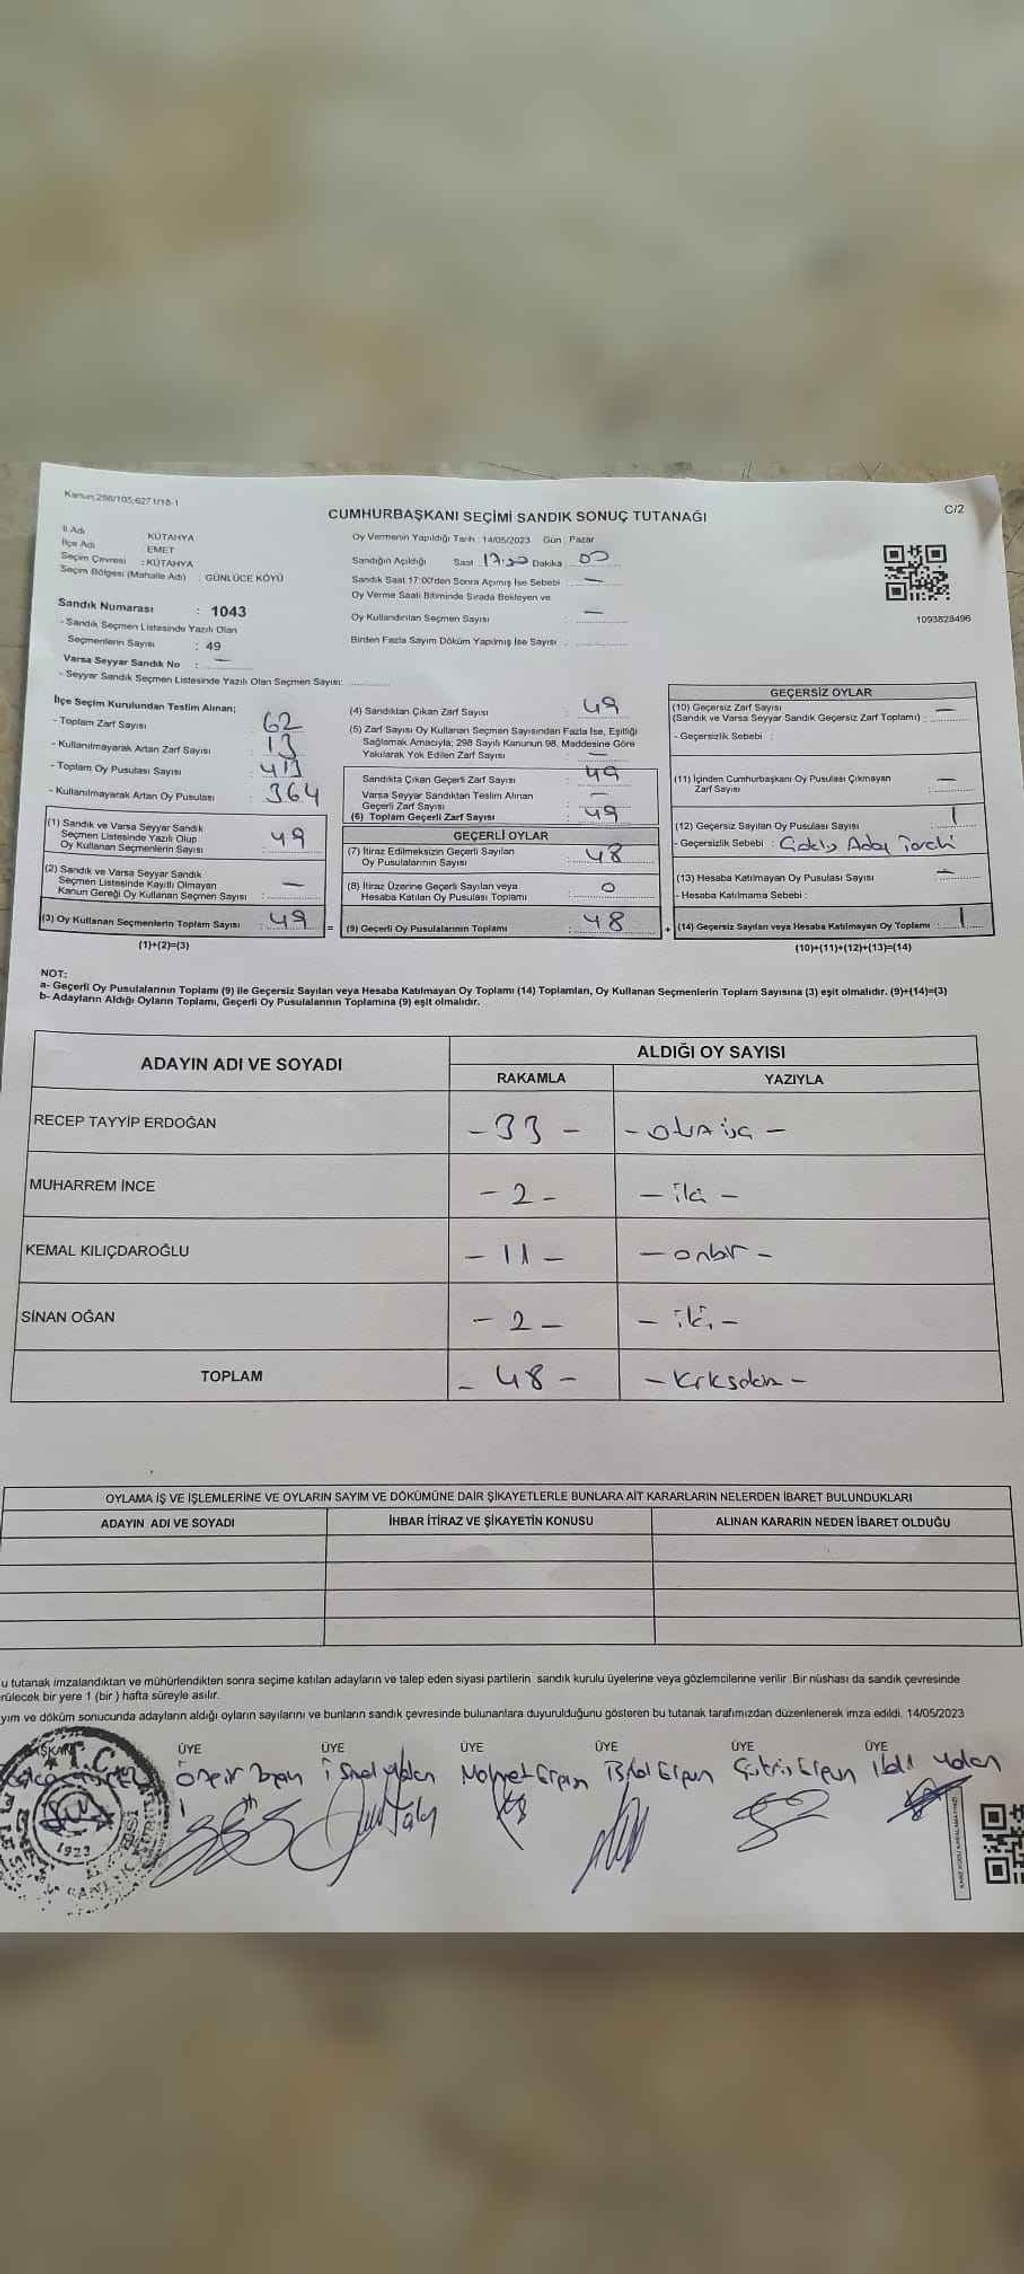 Kanun:298/105,6271/18-1
C/2
CUMHURBAŞKANI SEÇİMİ SANDIK SONUÇ TUTANAĞI
İl Adı KÜTAHYA
İlçe Adı EMET
Seçim Çevresi : KÜTAHYA
Seçim Bölgesi (Mahalle Adı) : GÜNLÜCE KÖYÜ
Sandık Numarası : 1043
- Sandık Seçmen Listesinde Yazılı Olan
Seçmenlerin Sayısı : 49
Varsa Seyyar Sandık No : —
- Seyyar Sandık Seçmen Listesinde Yazılı Olan Seçmen Sayısı:
Oy Vermenin Yapıldığı Tarih : 14/05/2023 Gün : Pazar
Sandığın Açıldığı Saat : 17:00 Dakika : 00
Sandık Saat 17:00'den Sonra Açımış İse Sebebi : —
Oy Verme Saati Bitiminde Sırada Bekleyen ve
Oy Kullandırılan Seçmen Sayısı : —
Birden Fazla Sayım Döküm Yapılmış İse Sayısı :
1093828496
İlçe Seçim Kurulundan Teslim Alınan;
- Toplam Zarf Sayısı 62
- Kullanılmayarak Artan Zarf Sayısı 13
- Toplam Oy Pusulası Sayısı : 413
- Kullanılmayarak Artan Oy Pusulası : 364
(1) Sandık ve Varsa Seyyar Sandık
Seçmen Listesinde Yazılı Olup
Oy Kullanan Seçmenlerin Sayısı : 49
(2) Sandık ve Varsa Seyyar Sandık
Seçmen Listesinde Kayıtlı Olmayan
Kanun Gereği Oy Kullanan Seçmen Sayısı : —
(3) Oy Kullanan Seçmenlerin Toplam Sayısı : 49
(1)+(2)=(3)
(4) Sandıktan Çıkan Zarf Sayısı : 49
(5) Zarf Sayısı Oy Kullanan Seçmen Sayısından Fazla İse, Eşitliği
Sağlamak Amacıyla; 298 Sayılı Kanunun 98. Maddesine Göre
Yakılarak Yok Edilen Zarf Sayısı : —
Sandıkta Çıkan Geçerli Zarf Sayısı : 49
Varsa Seyyar Sandıktan Teslim Alınan
Geçerli Zarf Sayısı : —
(6) Toplam Geçerli Zarf Sayısı : 49
GEÇERLİ OYLAR
(7) İtiraz Edilmeksizin Geçerli Sayılan
Oy Pusulalarının Sayısı : 48
(8) İtiraz Üzerine Geçerli Sayılan veya
Hesaba Katılan Oy Pusulası Toplamı : 0
= (9) Geçerli Oy Pusulalarının Toplamı : 48
GEÇERSİZ OYLAR
(10) Geçersiz Zarf Sayısı —
(Sandık ve Varsa Seyyar Sandık Geçersiz Zarf Toplamı) :
- Geçersizlik Sebebi :
(11) İçinden Cumhurbaşkanı Oy Pusulası Çıkmayan
Zarf Sayısı : —
(12) Geçersiz Sayılan Oy Pusulası Sayısı : 1
- Geçersizlik Sebebi : Çoklu Aday Tercihi
(13) Hesaba Katılmayan Oy Pusulası Sayısı : —
- Hesaba Katılmama Sebebi :
+ (14) Geçersiz Sayılan veya Hesaba Katılmayan Oy Toplamı : 1
(10)+(11)+(12)+(13)=(14)
NOT:
a- Geçerli Oy Pusulalarının Toplamı (9) ile Geçersiz Sayılan veya Hesaba Katılmayan Oy Toplamı (14) Toplamları, Oy Kullanan Seçmenlerin Toplam Sayısına (3) eşit olmalıdır. (9)+(14)=(3)
b- Adayların Aldığı Oyların Toplamı, Geçerli Oy Pusulalarının Toplamına (9) eşit olmalıdır.
ADAYIN ADI VE SOYADI ALDIĞI OY SAYISI
RAKAMLA YAZIYLA
RECEP TAYYİP ERDOĞAN - 33 - - otuz üç -
MUHARREM İNCE - 2 - - iki -
KEMAL KILIÇDAROĞLU - 11 - - onbir -
SİNAN OĞAN - 2 - - iki -
TOPLAM - 48 - - Kırksekiz -
OYLAMA İŞ VE İŞLEMLERİNE VE OYLARIN SAYIM VE DÖKÜMÜNE DAİR ŞİKAYETLERLE BUNLARA AİT KARARLARIN NELERDEN İBARET BULUNDUKLARI
ADAYIN ADI VE SOYADI İHBAR İTİRAZ VE ŞİKAYETİN KONUSU ALINAN KARARIN NEDEN İBARET OLDUĞU
u tutanak imzalandıktan ve mühürlendikten sonra seçime katılan adayların ve talep eden siyasi partilerin sandık kurulu üyelerine veya gözlemcilerine verilir. Bir nüshası da sandık çevresinde
rülecek bir yere 1 (bir) hafta süreyle asılır.
yım ve döküm sonucunda adayların aldığı oyların sayılarını ve bunların sandık çevresinde bulunanlara duyurulduğunu gösteren bu tutanak tarafımızdan düzenlenerek imza edildi. 14/05/2023
ÜYE ÜYE ÜYE ÜYE ÜYE ÜYE
T.C.
1923